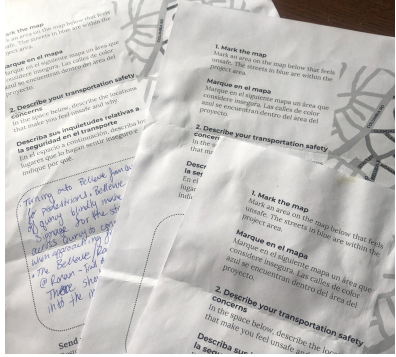 ark the map
k an area on the map below that feels
afe. The streets in blue are within the
ject area.
arque en el mapa
arque en el siguiente mapa un área que
onsidere insegura. Las calles de color
zul se encuentran dentro del área del
proyecto.
2. Describe your transportation safety
concerns
In the space below, describe the locations
that make you feel unsafe and why.
Describa sus inquietudes relativas a
la seguridad en el transporte
En el espacio a continuación, describa los
lugares que lo hagan sentir inseguro e
indique por qué.
Turning onto Bellevue
for pedestrians. Bellevue
of quincy
Signage for the
across Quincy to
when approaching
The Bellevue
@ Roman
There
into the in
Send
1. Mark the map
Mark an area on the map below that feels
unsafe. The streets in blue are within the
project area.
Marque en el mapa
Marque en el siguiente mapa un área que
considere insegura. Las calles de color
azul se encuentran dentro del área del
proyecto.
2. Describe your transportation safety
concer
In the s
that m
Descr
la se
En el
luga
indi
1. Mark the map
Mark an area on the map below that feels
unsafe. The streets in blue are within the
project area.
Marque en el mapa
Marque en el siguiente mapa un área que
considere insegura. Las calles de color
azul se encuentran dentro del área del
proyecto.
2. Describe your transportation safety
concerns
In the space below, describe the loc
that make you feel unsafe and
Describa sus in
la segu